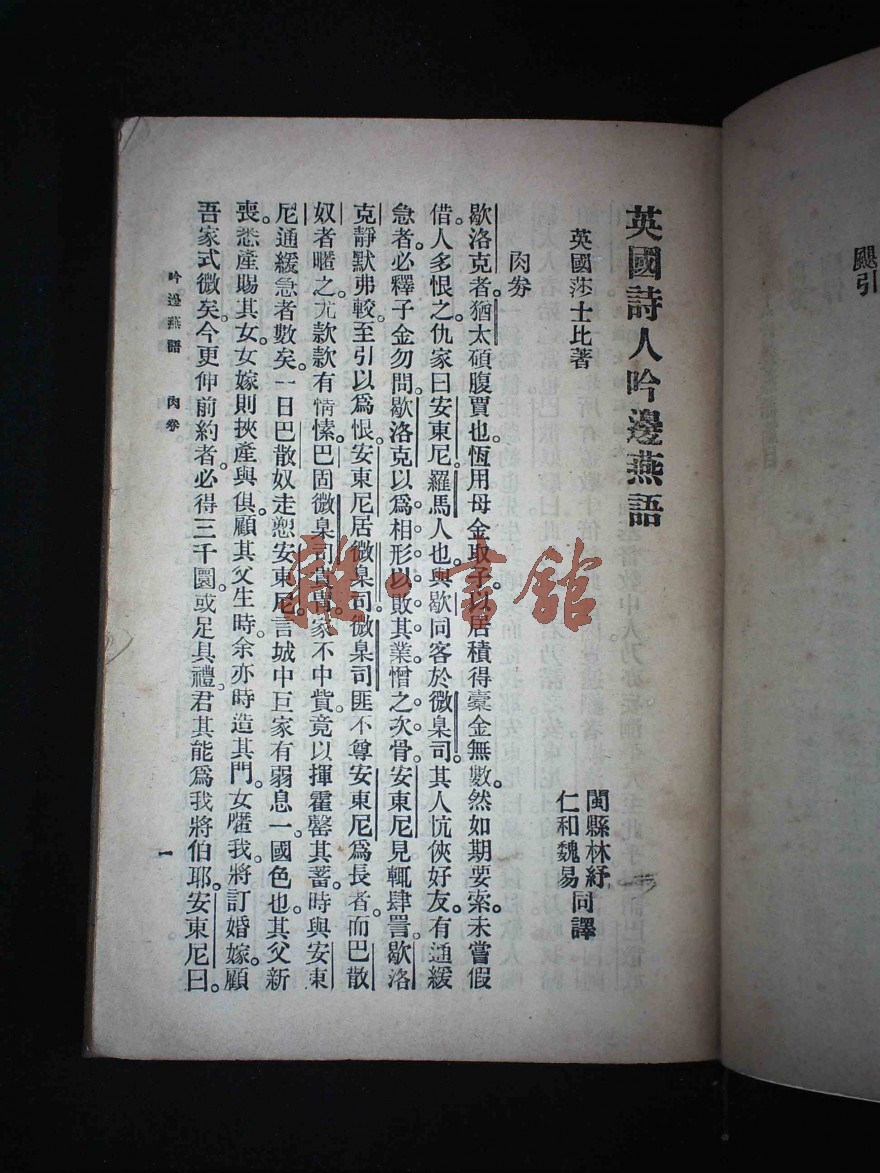 颶引
英國詩人吟邊燕語
英國莎士比著
閩縣林紓同譯
仁和魏易
肉券
歇洛克者。猶太碩腹賈也。恆用母金取子。以居積得橐金無數。然如期要索。未嘗假
借。人多恨之。仇家曰安東尼。羅馬人也。與歇同客於微臬司。其人忼俠好友。有通緩
急者。必釋子金勿問。歇洛克以為相形以敗其業。憎之次骨。安東尼見輒肆詈。歇洛
克靜默弗較。至引以為恨。安東尼居微臬司。微臬司匪不尊安東尼為長者。而巴散
奴者暱之。尤款款有情愫。巴固微臬司貴胄。家不中貲。竟以揮霍罄其蓄。時與安東
尼通緩急者數矣。一日巴散奴走愬安東尼。言城中巨家有弱息一。國色也。其父新
喪。悉產賜其女。女嫁則挾產與俱。顧其父生時。余亦時造其門。女暱我。將訂婚嫁。顧
吾家式微矣。今更伸前約者。必得三千圜。或足具禮。君其能為我將伯耶。安東尼曰。
吟邊燕語　肉券
一
雜·書館